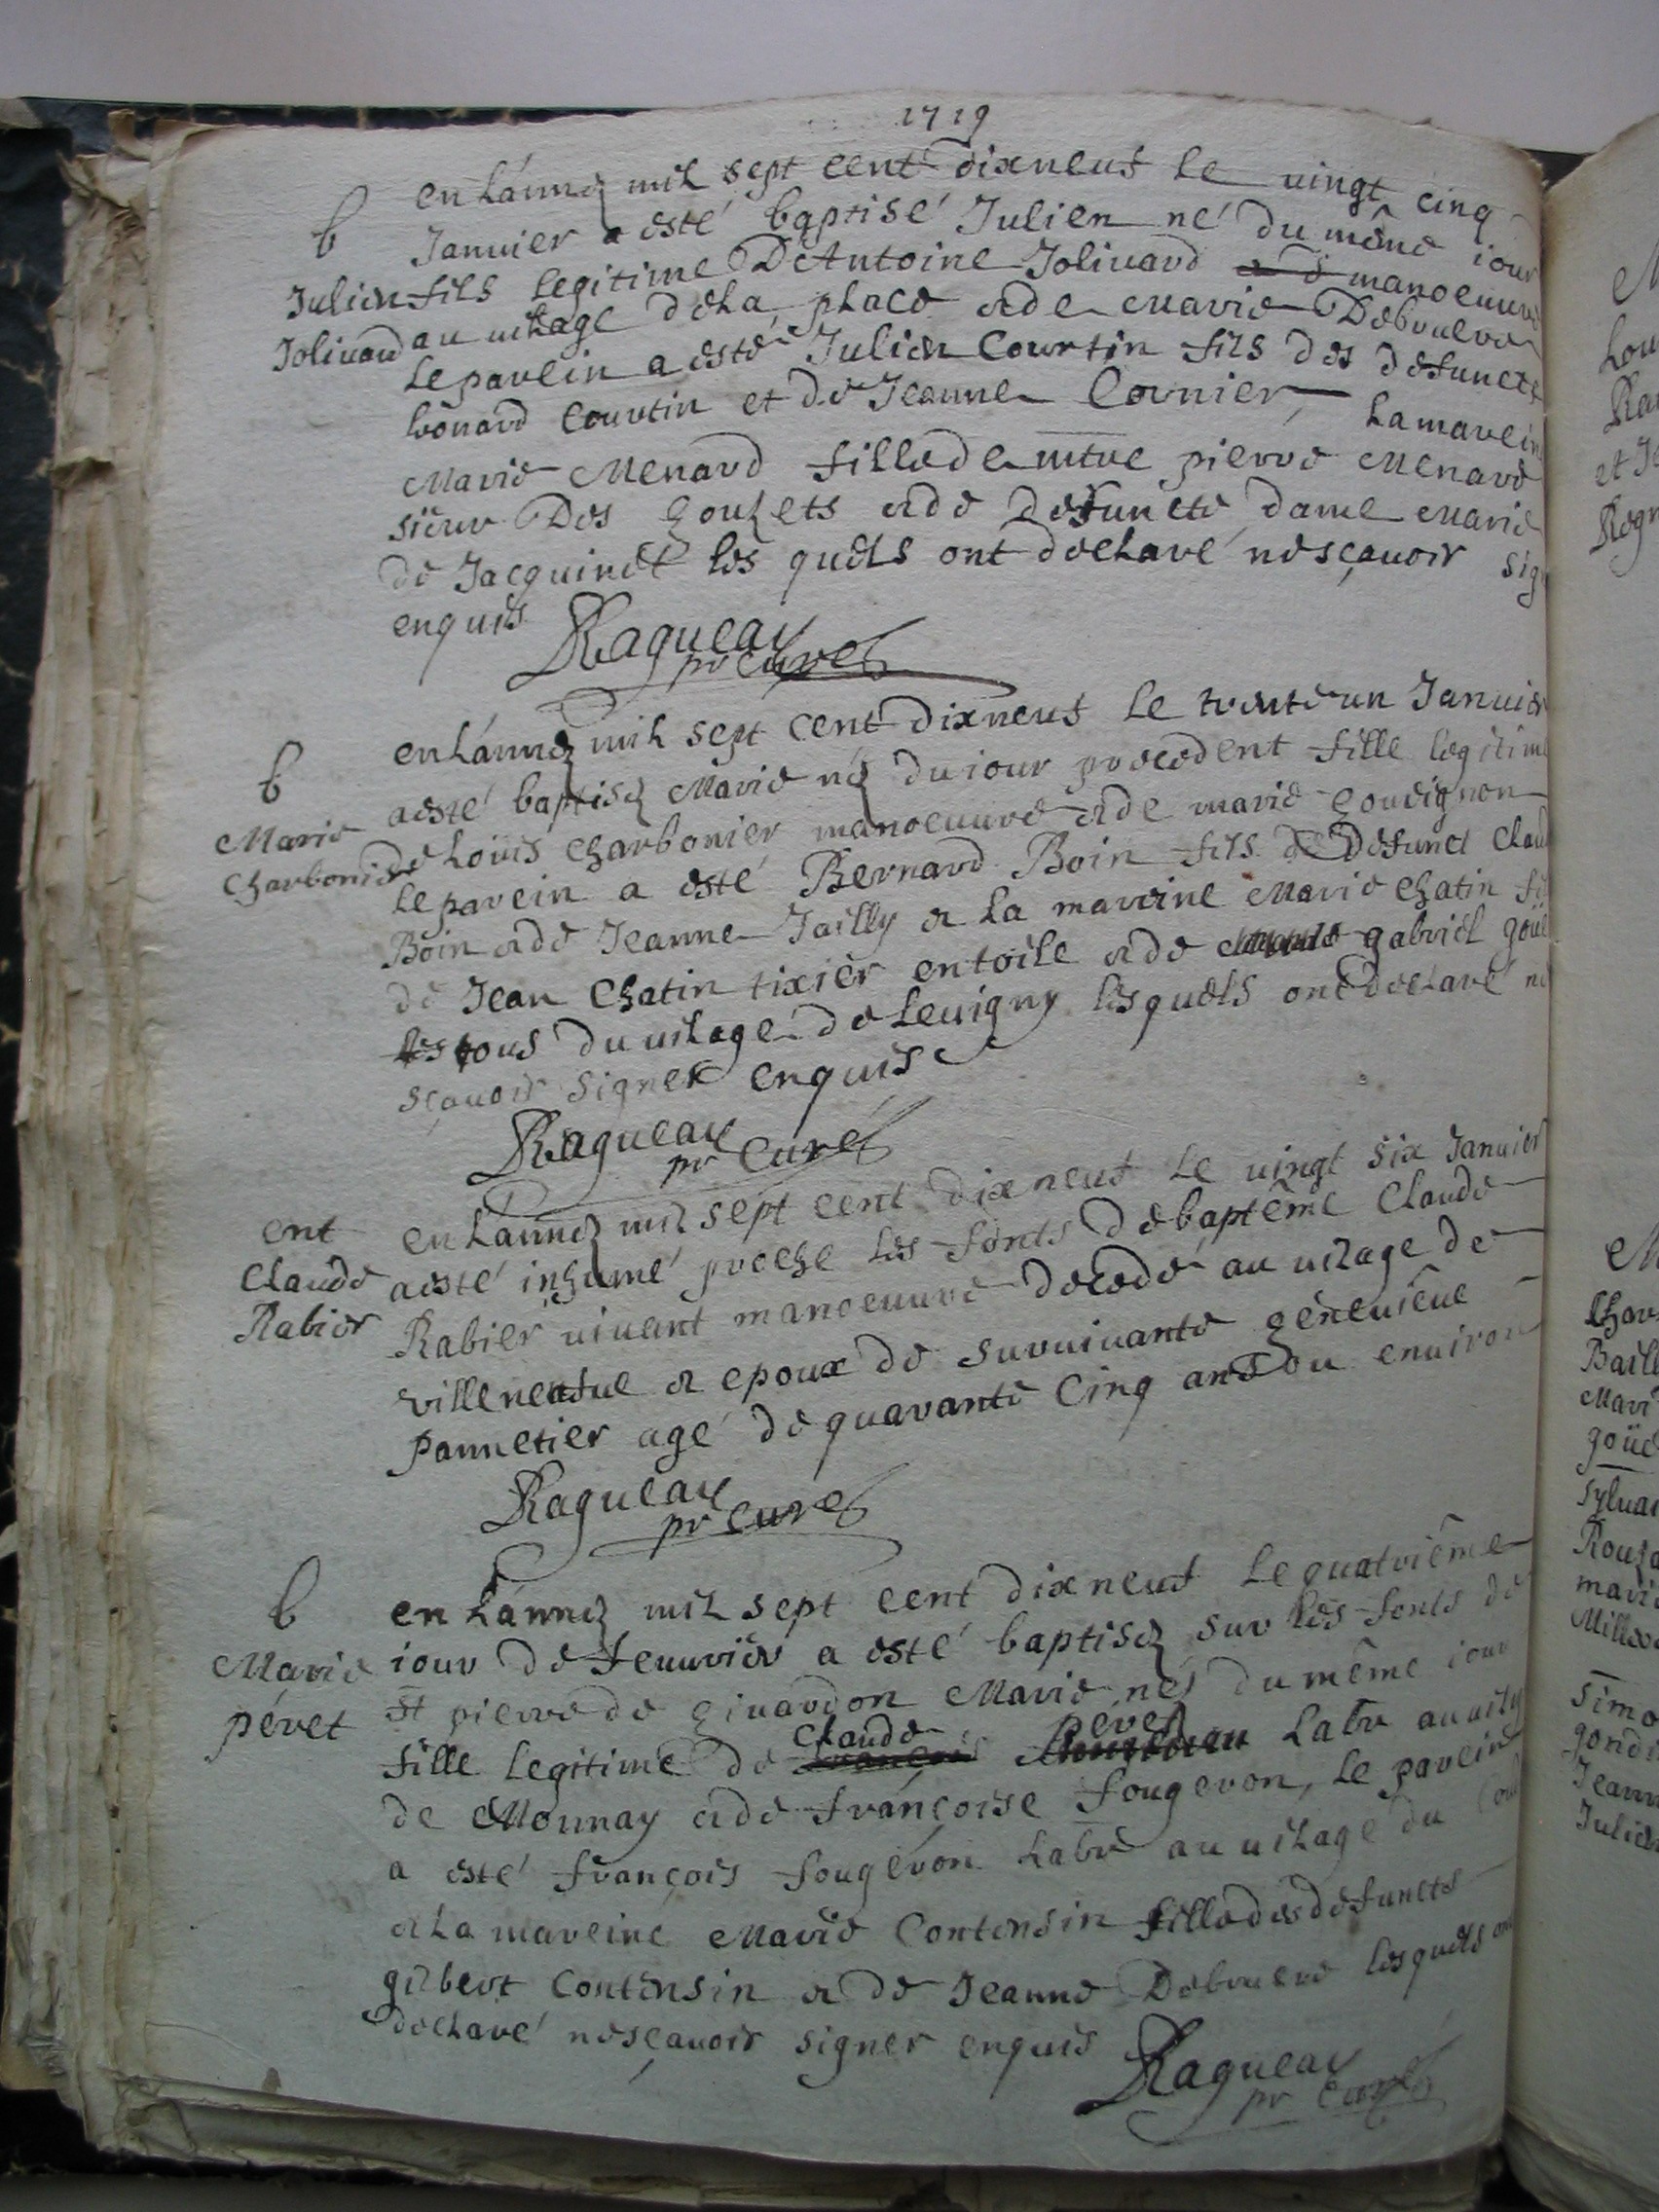 1719
en l'année mil sept cent dixneuf le vingt cinq
b
Januier a esté baptisé Julien né du même iour
Julien
fils legitime D'Antoine Joliuard manoeuure
Joliuard
au uilage de la place et de Marie Debruere
le parein a esté Julien Courtin fils des defuncts
léonard Courtin et de Jeanne Cornier, la marein
Marie Menard fille de mtre pierre Menard
sieur Des et de defuncte dame Marie
de Jacquinet les quels ont declaré ne sçauoir sig
enquis
Ragueau
pr curé
en l'année mil sept cent dixneuf le trente un Januier
b
a esté baptisé Marie née du iour precedent fille legitime
Marie
Charbonier
de Loüis Charbonier manoeuure et de marie goudignon
le parein a esté Bernard Boin fils de Defunct Claud
Boin et de Jeanne Jailly et la marrine Marie Chatin fi
de Jean Chatin tixier en toile et de gabriel goüe
tous du uilage de Leuigny lesquels ont declaré ne
sçauoir signer enquis
Ragueau
pr Curé
ent
en l'année mil sept cent dixneuf le uingt six Januier
Claude
a esté inhumé proche les fonts de baptême Claude
Rabier
Rabier uiuant manoeuure decedé au uilage de
villeneufue et epoux de suruiuante geneuieue
pannetier agé de quarante cinq ans ou enuiron
Ragueau
pr curé
b
en l'année mil sept cent dixneuf le quatrième
Marie
iour de feuurier a esté baptisée sur les fonts de
péret
st pierre de giuardon Marie née du même iour
Claude Peret
fille legitime de labr au uilg
de Mornay et de françoise fougeron, le parein
a esté françois fougéron labr au uilage du
et la mareine Marie Contensin fille des defuncts
gilbert Contensin et de Jeanne Debruere lesquels ont
declaré ne sçauoir signer enquis
Ragueau
pr Curé